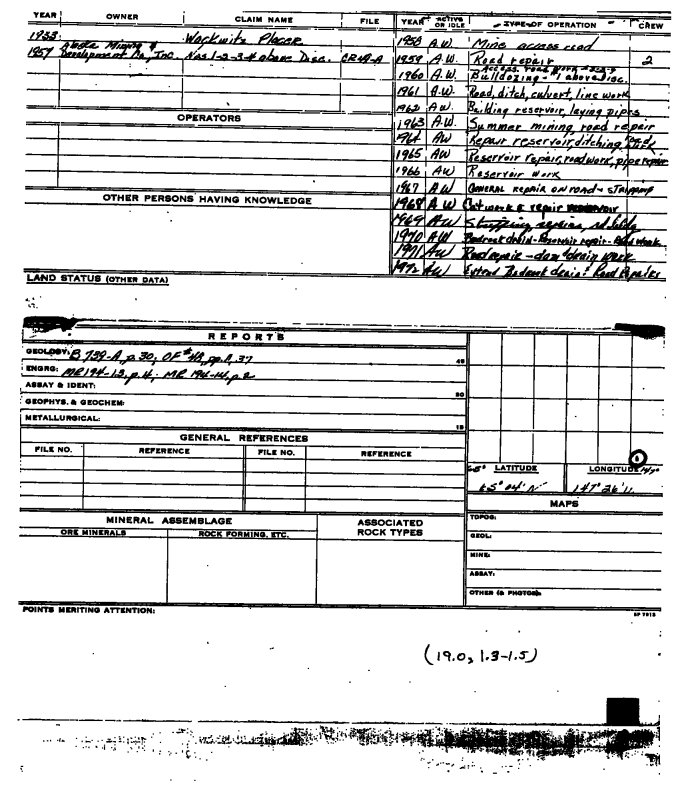 YEAR OWNER CLAIM NAME FILE
1933 Wackwitz Placer
1957 Alaska Mining &
Development Co., Inc. Nos 1-2-3-4 above Disc. CR49-A
OPERATORS
OTHER PERSONS HAVING KNOWLEDGE
LAND STATUS (OTHER DATA)
YEAR ACTIVE OR IDLE TYPE OF OPERATION CREW
1958 A.W. Mine access road
1959 A.W. Road repair 2
Access road work
1960 A.W. Bulldozing - 1 above Disc.
1961 A.W. Road, ditch, culvert, line work
1962 A.W. Building reservoir, laying pipes
1963 A.W. Summer mining, road repair
1964 AW Repair reservoir, ditching
1965 AW Reservoir repair, roadwork, pipe repair
1966 AW Reservoir work
1967 AW General repair on road - stripping
1968 AW Cat work & repair reservoir
1969 AW Stripping
1970 AW Bedrock drain - Reservoir repair - Road work
1971 AW Road repair - dam & drain work
1972 AW Extend Bedrock drain: Road Repairs
REPORTS
GEOLOGY: B 739-A, p. 30; OF # 48, pp. 37
ENGRG: MR 194-13, p. 4; MR 194-14, p. 2
45
ASSAY & IDENT:
30
GEOPHYS. & GEOCHEM:
METALLURGICAL:
15
GENERAL REFERENCES
FILE NO. REFERENCE FILE NO. REFERENCE
65° LATITUDE LONGITUDE
65° 04' N 147° 26' W
MAPS
TOPOG:
GEOL:
MINE:
ASSAY:
OTHER (& PHOTOS):
MINERAL ASSEMBLAGE
ORE MINERALS ROCK FORMING, ETC.
ASSOCIATED ROCK TYPES
POINTS MERITING ATTENTION:
(19.0, 1.3-1.5)